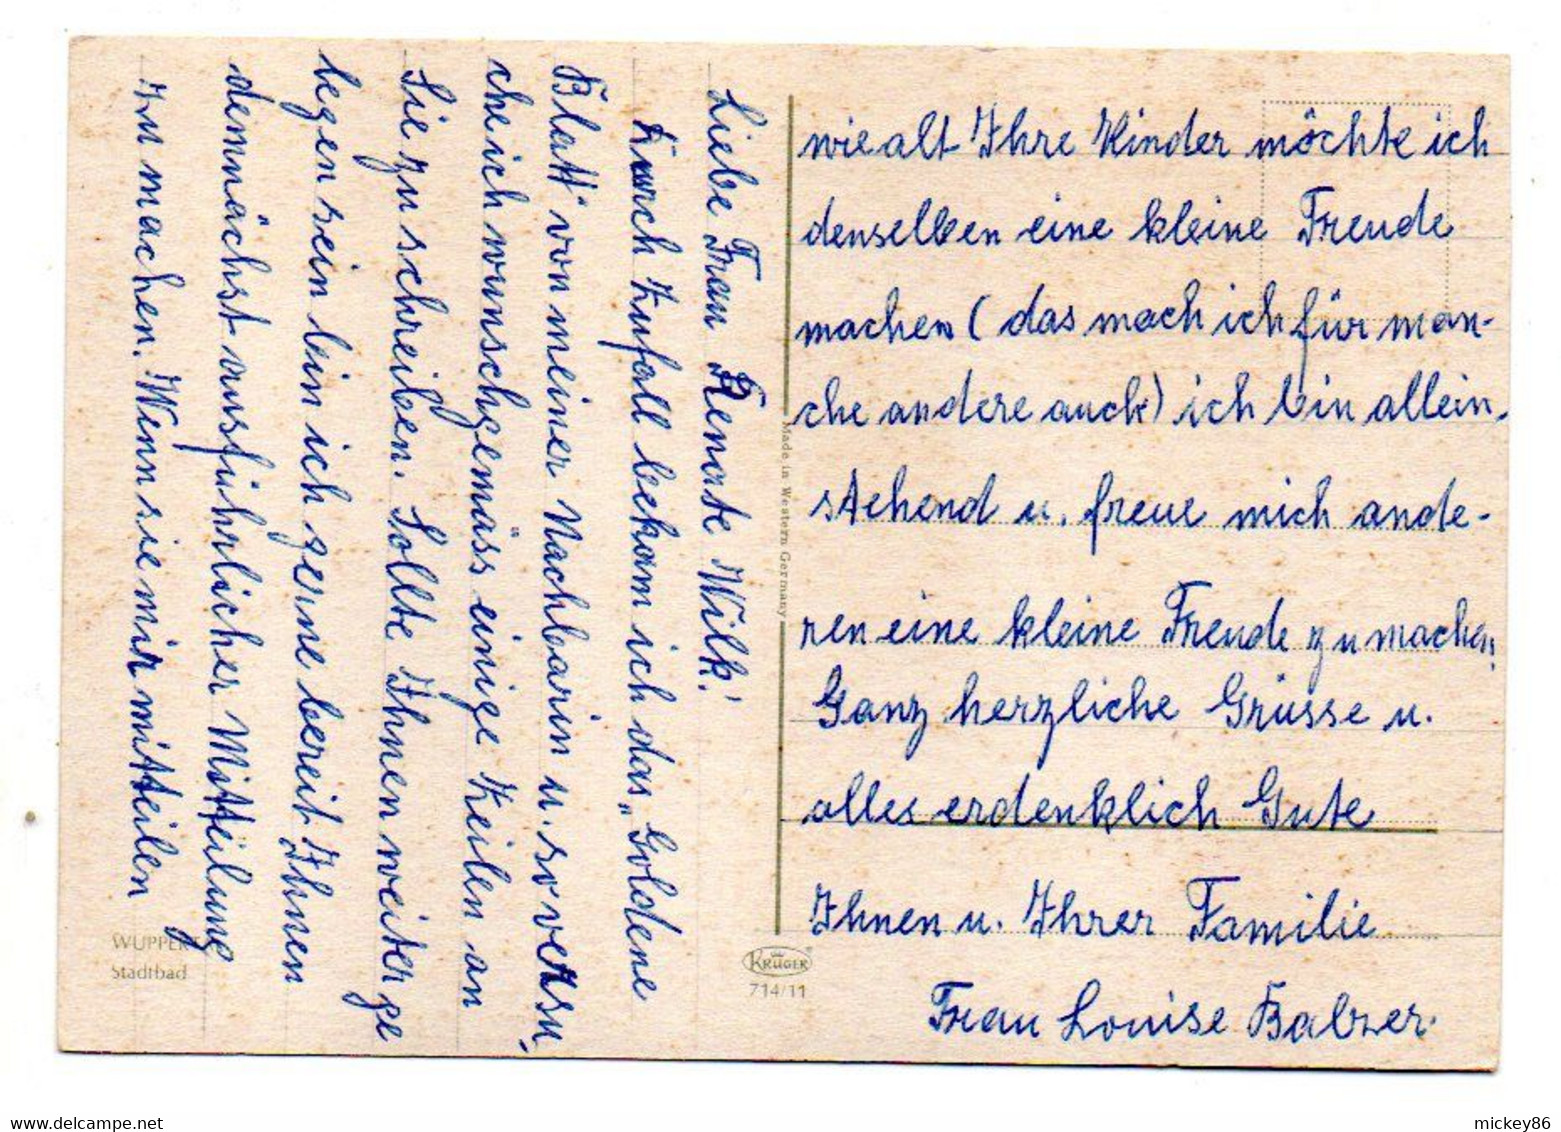 Liebe Frau Renate Wilk!
Durch Zufall bekam ich das „Goldene
Blatt" von meiner Nachbarin u. so versu-
che ich wunschgemäss einige Zeilen an
Sie zu schreiben. Sollte Ihnen weiter ge
legen sein bin ich gerne bereit Ihnen
demnächst ausführlicher Mitteilung
zu machen. Wenn sie mir mitteilen
wie alt Ihre Kinder möchte ich
denselben eine kleine Freude
machen (das mach ich für man-
che andere auch) ich bin allein-
stehend u. freue mich ande-
ren eine kleine Freude zu machen,
Ganz herzliche Grüsse u.
alles erdenklich Gute
Ihnen u. Ihrer Familie
Frau Louise Balzer.
Made in Western Germany
KRÜGER
714/11
WUPPER
Stadtbad
mickey86